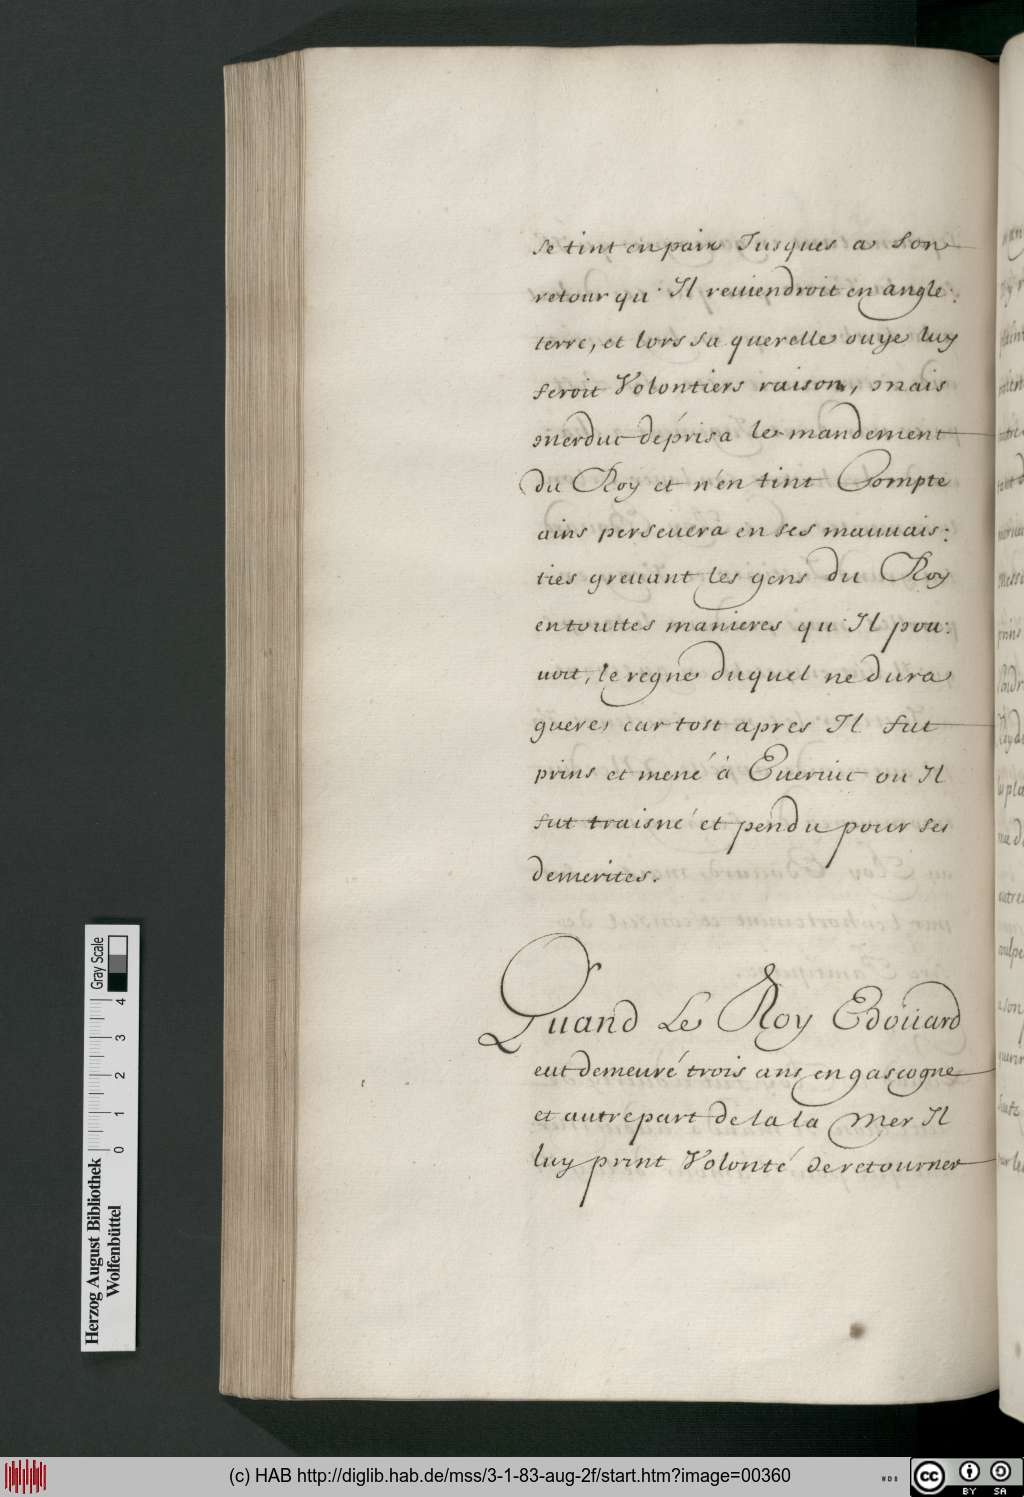 se tint en paix Jusques a son
retour qu'Il reuiendroit en angle:
terre, et lors sa querelle ouye luy
feroit Volontiers raison, mais
merduc déprisa le mandement
du Roy et n'en tint Compte
ains perseuera en ses mauuais:
ties greuant les gens du Roy
en touttes manieres qu'Il pou:
uoit, le regne duquel ne dura
guere, car tost apres Il fut
prins et mené à Eueruic ou Il
fut traisné et pendu pour ses
demerites.
Quand Le Roy Edoüard
eut demeuré trois ans en gascogne
et autre part de la la Mer Il
luy print Volonté de retourner
Herzog August Bibliothek
Wolfenbüttel
0 1 2 3 4
Gray Scale
(c) HAB http://diglib.hab.de/mss/3-1-83-aug-2f/start.htm?image=00360
WDB
cc BY SA